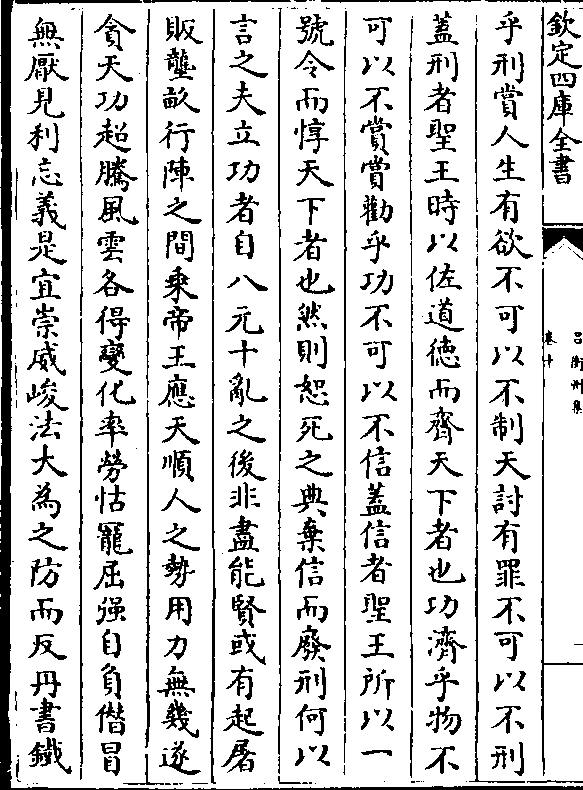 欽定四庫全書
呂衡州集
卷十
一
乎刑賞人生有欲不可以不制天討有罪不可以不刑
蓋刑者聖王時以佐道德而齊天下者也功濟乎物不
可以不賞賞勸乎功不可以不信蓋信者聖王所以一
號令而惇天下者也然則恕死之典棄信而廢刑何以
言之夫立功者自八元十亂之後非盡能賢或有起屠
販壟畝行陣之間乗帝王應天順人之勢用力無幾遂
貪天功超騰風雲各得變化率勞怙寵屈强自負僭冒
無厭見利忘義是宜崇威峻法大為之防而反丹書鐵